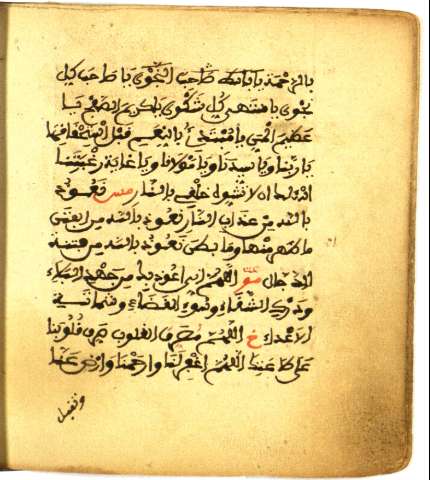 بالرحمة يا صاحب النجوى يا صاحب كل
نجوى يا منتهى كل شكوى يا كريم الصفح يا
عظيم المن يا مبتدئ بالنعم قبل استحقاقها
يا ربنا ويا سيدنا ويا مولانا ويا غاية رغبتنا
ان لا تشوه خلقي بالنار مس نعوذ
بالله من عذاب النار نعوذ بالله من الفتن
ما ظهر منها وما بطن نعوذ بالله من فتنة
الدجال اللهم اني اعوذ بك من جهد البلاء
ودرك الشقاء وسوء القضاء وشماتة
الاعداء خ اللهم مصرف القلوب صرف قلوبنا
على طاعتك اللهم اغفر لنا وارحمنا وارض عنا
وتقبل